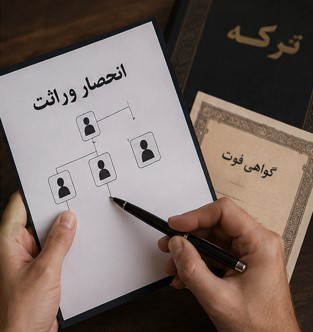 انحصار وراثت
ترکه
گواهی فوت